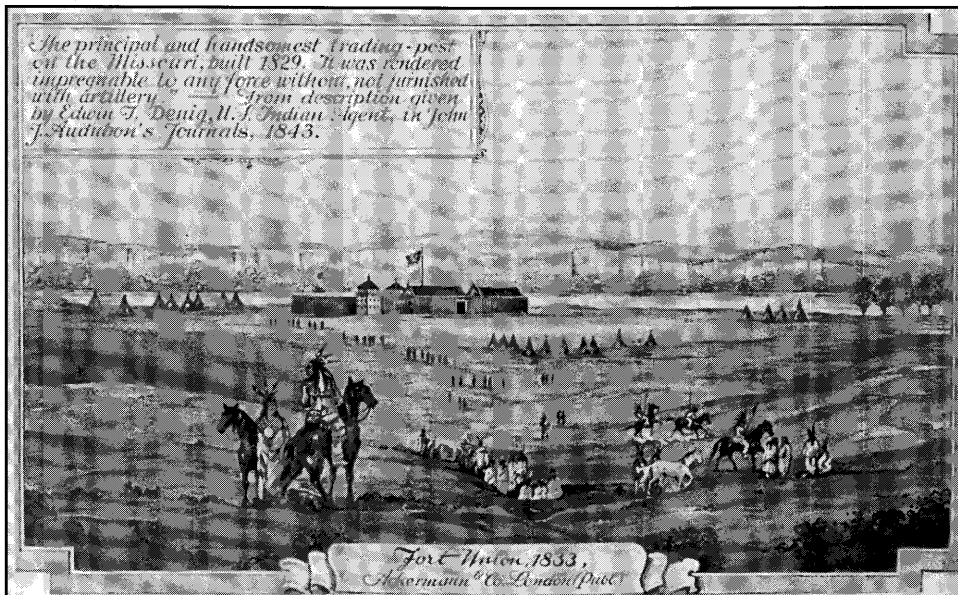 The principal and handsomest trading-post
on the Missouri, built 1829. It was rendered
impregnable to any force without, not furnished
with artillery." — From description given
by Edwin T. Denig, U.S. Indian Agent, in John
J. Audubon's Journals, 1843.
Fort Union, 1833,
Ackermann & Co. London Publ